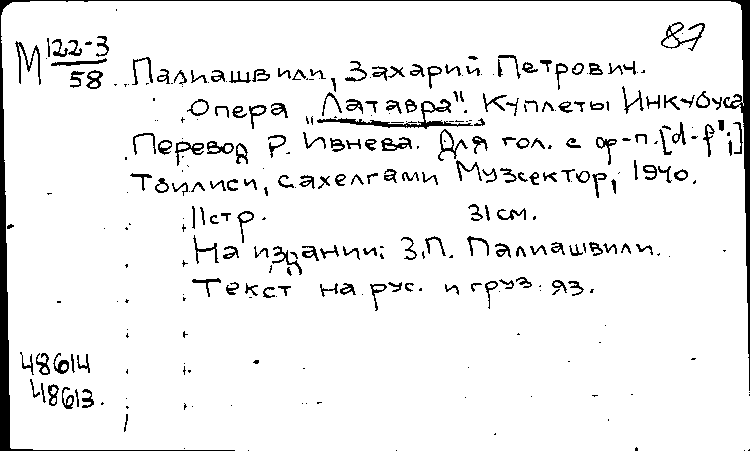 87
М 122-3
58
Палиашвили, Захарий Петрович.
Опера "Латавра". Куплеты Инкубуса
Перевод Р. Ивнева. Для гол. с ф-п. [d-f";]
Тбилиси, Сахелгами Музсектор, 1940.
11 стр. 31 см.
На издании: З.П. Палиашвили.
Текст на рус. и груз. яз.
48614
48613.